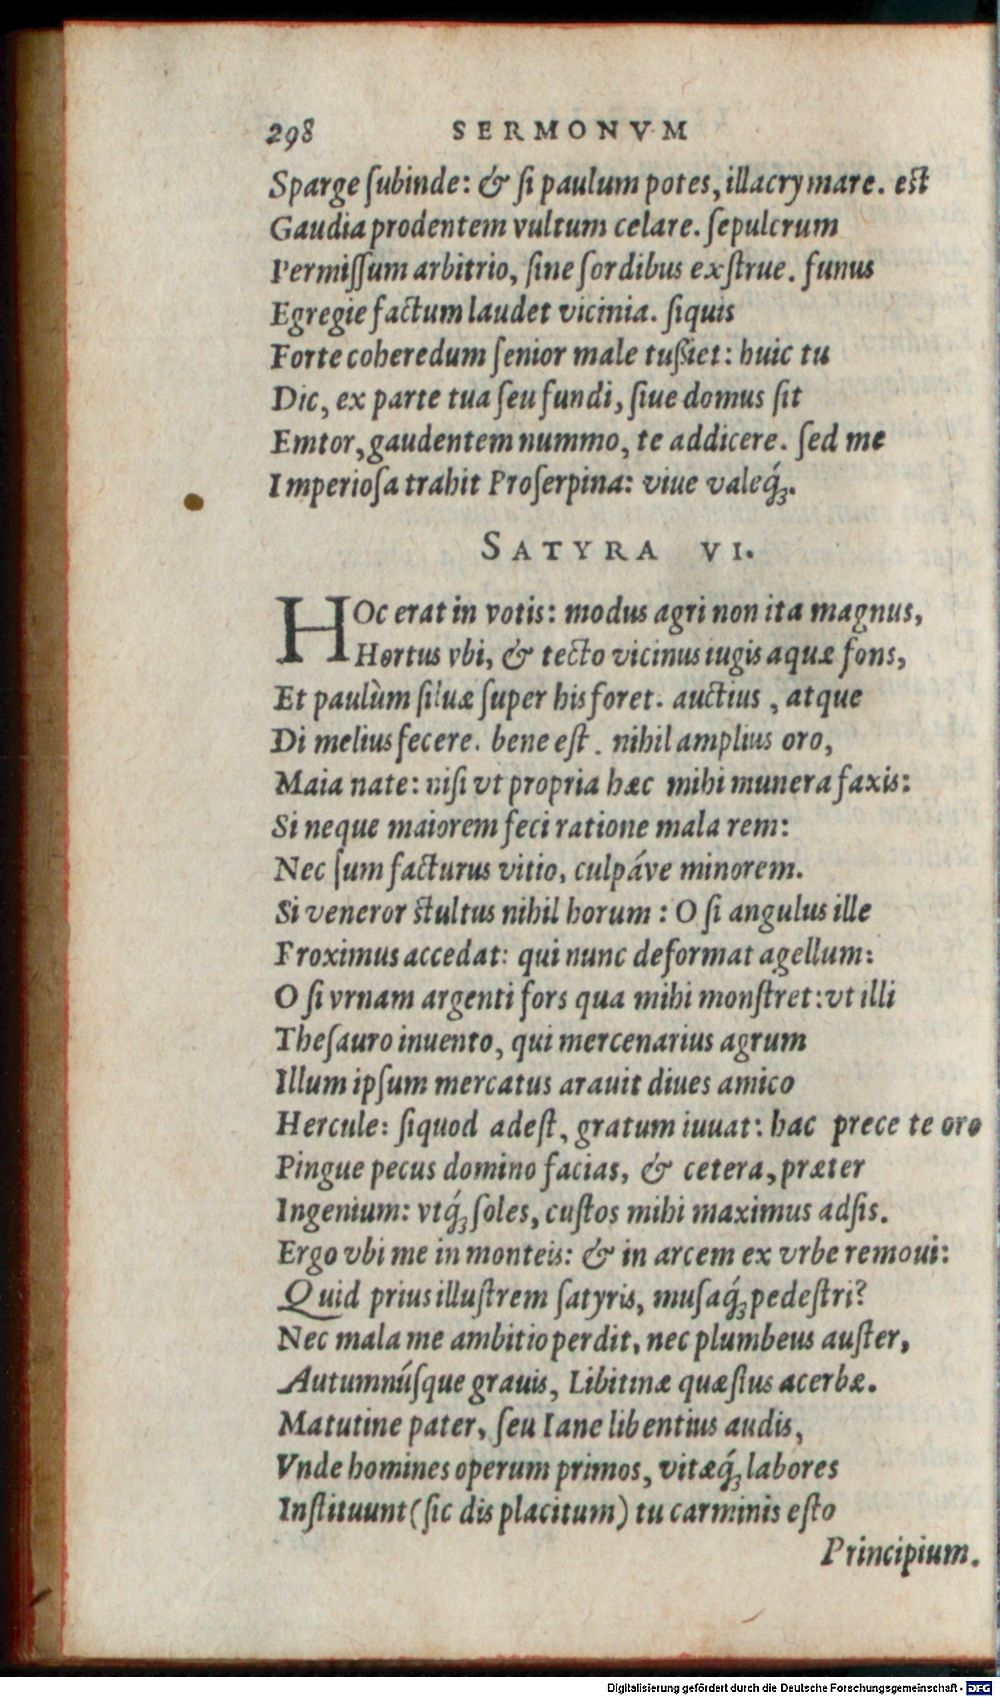 298 SERMONVM
Sparge ſubinde: & ſi paulum potes, illacrymare. est
Gaudia prodentem vultum celare. ſepulcrum
Permiſſum arbitrio, ſine ſordibus exſtrue. funus
Egregie factum laudet vicinia. ſiquis
Forte coheredum ſenior male tußiet: huic tu
Dic, ex parte tua ſeu fundi, ſiue domus ſit
Emtor, gaudentem nummo, te addicere. ſed me
Imperioſa trahit Proſerpina: viue valeq́ꝫ.
SATYRA VI.
HOc erat in votis: modus agri non ita magnus,
Hortus vbi, & tecto vicinus iugis aquæ fons,
Et paulùm ſiluæ ſuper his foret. auctius, atque
Di melius fecere. bene eſt. nihil amplius oro,
Maia nate: niſi vt propria hæc mihi munera faxis:
Si neque maiorem feci ratione mala rem:
Nec ſum facturus vitio, culpáve minorem.
Si veneror stultus nihil horum: O ſi angulus ille
Proximus accedat: qui nunc deformat agellum:
O ſi vrnam argenti fors qua mihi monſtret: vt illi
Theſauro inuento, qui mercenarius agrum
Illum ipſum mercatus arauit diues amico
Hercule: ſiquod adeſt, gratum iuuat: hac prece te oro
Pingue pecus domino facias, & cetera, præter
Ingenium: vtq́ꝫ ſoles, cuſtos mihi maximus adſis.
Ergo vbi me in monteis: & in arcem ex vrbe remoui:
Quid prius illuſtrem ſatyris, muſaq́ꝫ pedeſtri?
Nec mala me ambitio perdit, nec plumbeus auſter,
Autumnúſque grauis, Libitinæ quæſtus acerbæ.
Matutine pater, ſeu Iane libentius audis,
Vnde homines operum primos, vitæq́ꝫ labores
Inſtituunt (ſic dis placitum) tu carminis eſto
Principium.
Digitalisierung gefördert durch die Deutsche Forschungsgemeinschaft - DFG